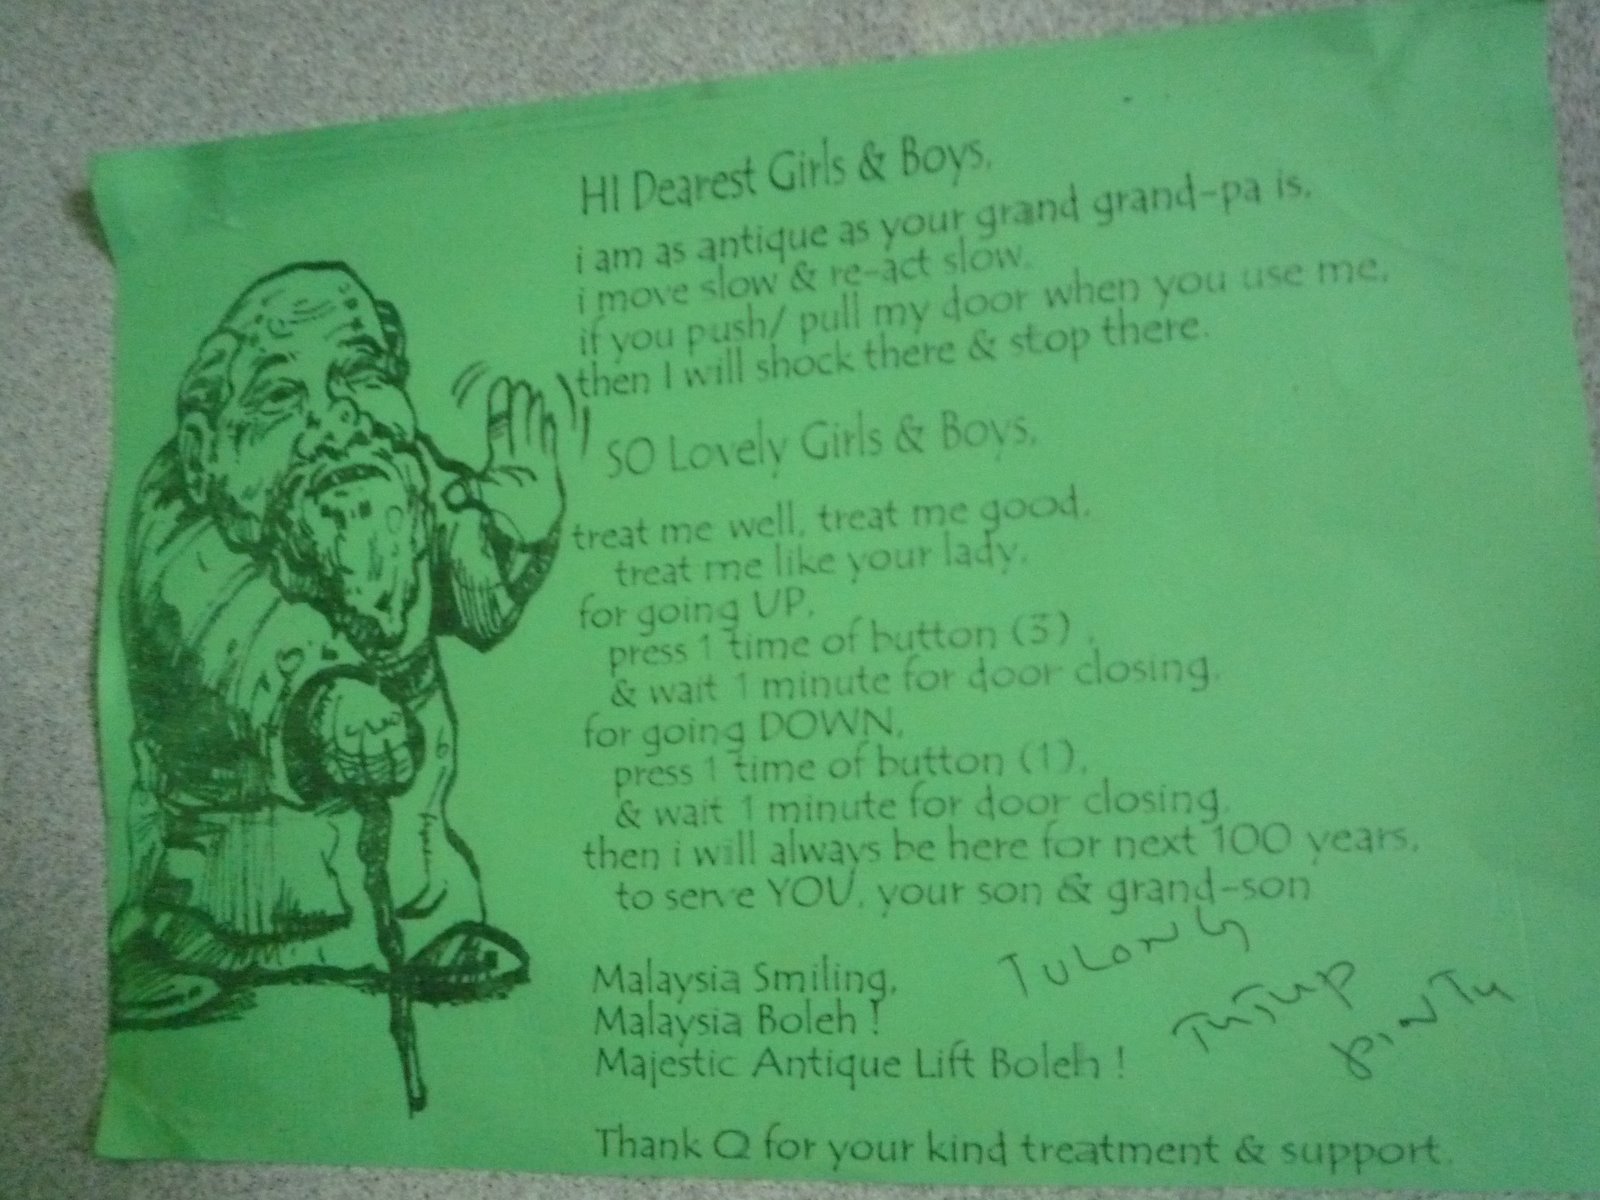 HI Dearest Girls & Boys,
i am as antique as your grand grand-pa is,
i move slow & re-act slow,
if you push/ pull my door when you use me,
then I will shock there & stop there.
SO Lovely Girls & Boys,
treat me well, treat me good,
treat me like your lady,
for going UP,
press 1 time of button (3) ,
& wait 1 minute for door closing,
for going DOWN,
press 1 time of button (1),
& wait 1 minute for door closing,
then i will always be here for next 100 years,
to serve YOU, your son & grand-son
Malaysia Smiling,
Malaysia Boleh !
Majestic Antique Lift Boleh !
TULONG
TUTUP
PINTU
Thank Q for your kind treatment & support.